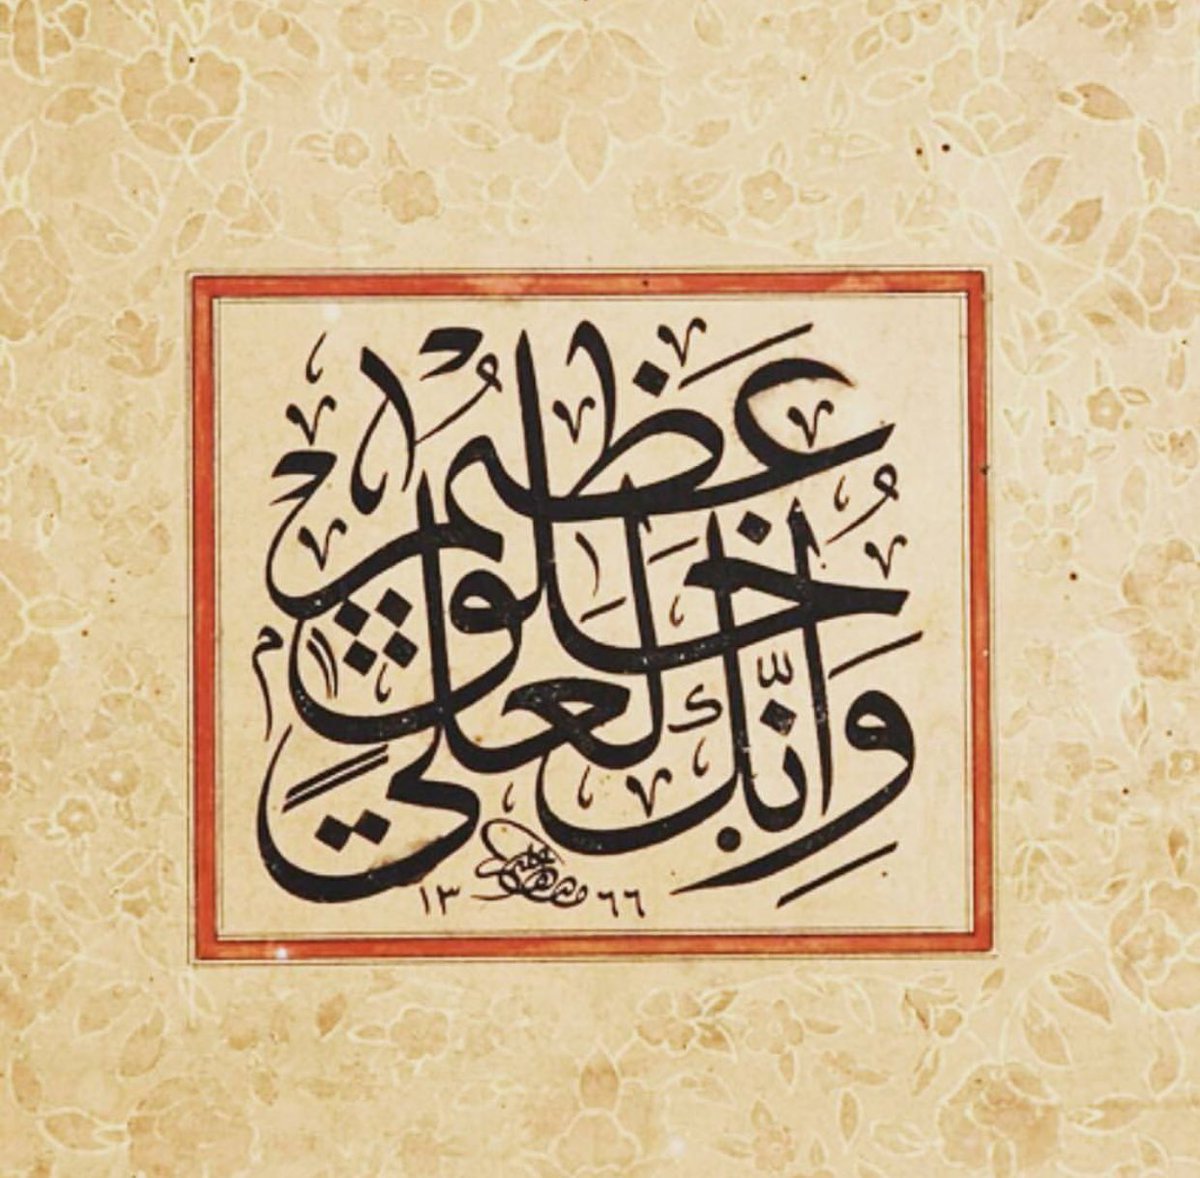 وَإِنَّكَ لَعَلَىٰ
خُلُقٍ
عَظِيمٍ
١٣٦٦